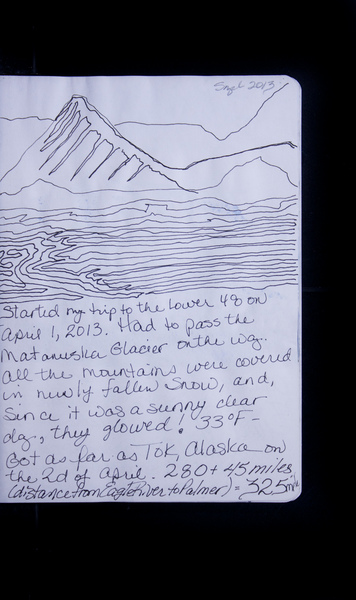 2013
Started my trip to the lower 48 on
April 1, 2013. Had to pass the
Matanuska Glacier on the way.
all the mountains were covered
in newly fallen snow, and,
since it was a sunny clear
day, they glowed! 33°F-
Got as far as Tok, Alaska on
the 2d of April. 280 + 45 miles
(distance from Eagle River to Palmer) = 325 mi.